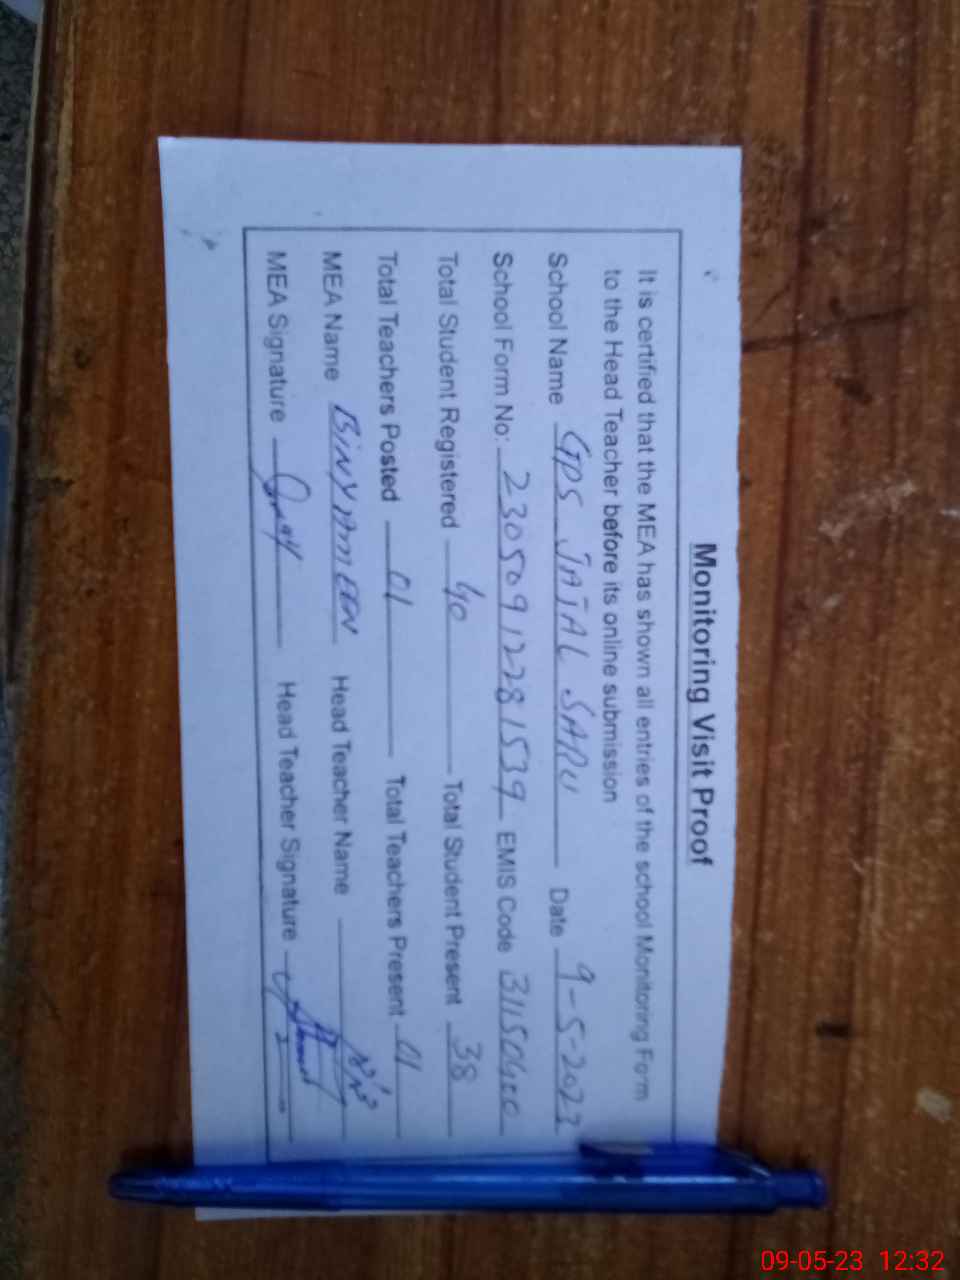 Monitoring Visit Proof
It is certified that the MEA has shown all entries of the school Monitoring Form
to the Head Teacher before its online submission
School Name GPS JATAL SARU Date 9-5-2023
School Form No: 2305091228 1539 EMIS Code
Total Student Registered 40 Total Student Present 38
Total Teachers Posted 01 Total Teachers Present 01
MEA Name BINYAMEEN Head Teacher Name
MEA Signature Head Teacher Signature
09-05-23 12:32